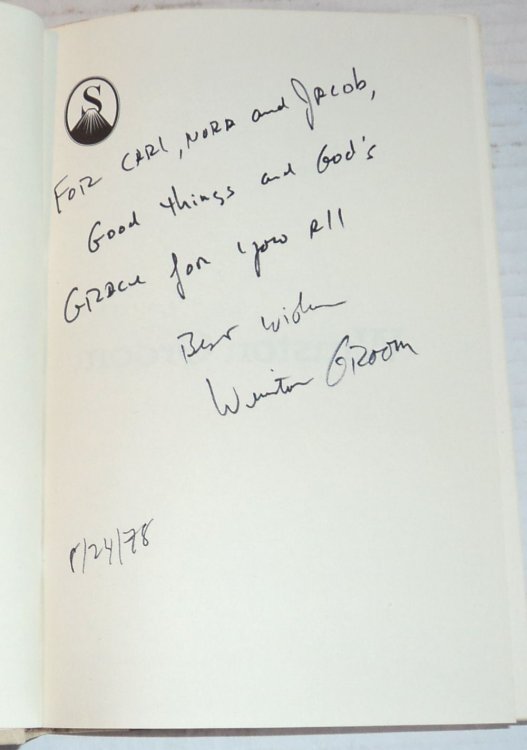 S
For Carl, Nora and Jacob,
Good things and God's
Grace for you all
Best wishes
Winston Groom
/24/78